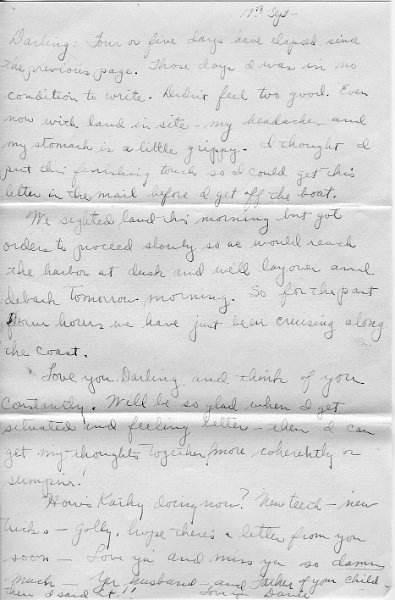 19th Sept -
Darling: Four or five days have elapsed since
the previous page. Those days I was in no
condition to write. Didn't feel too good. Even
now with land in site - my headaches, and
my stomach is a little grippy. I thought I
put this finishing touch so I could get this
letter in the mail before I get off the boat.
We sighted land this morning but got
orders to proceed slowly so we would reach
the harbor at dusk and we'll layover and
debark tomorrow morning. So for the past
hours we have just been cruising along
the coast.
Love you Darling and think of you
constantly. Will be so glad when I get
situated and feeling better - then I can
get my thoughts together more coherently or
sumpin'.
How's Kathy doing now? New teeth - new
tricks - Golly, hope there's a letter from you
soon - Love ya and miss ya so damn
much - Yer husband - and Father of your child -
there I said it!! Love ya